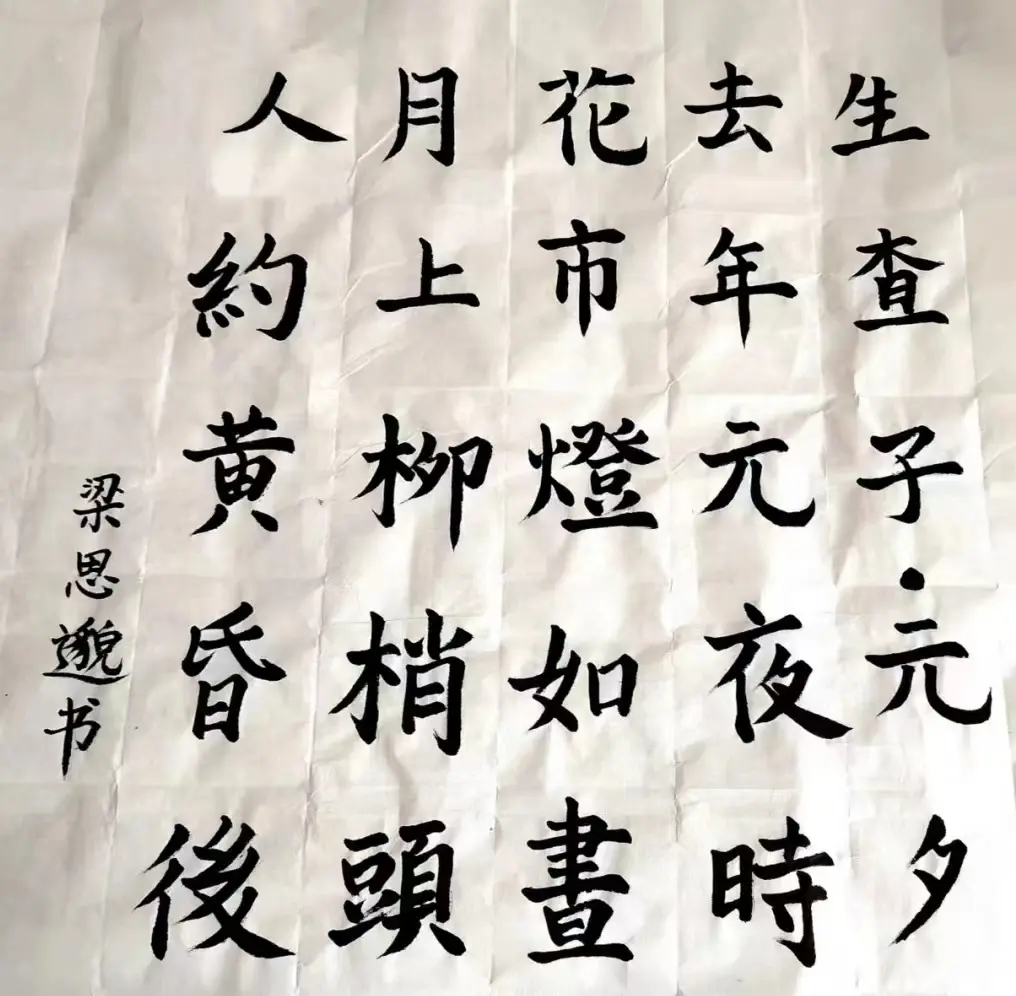 生查子·元夕
去年元夜時
花市燈如晝
月上柳梢頭
人約黃昏後
梁思邈书